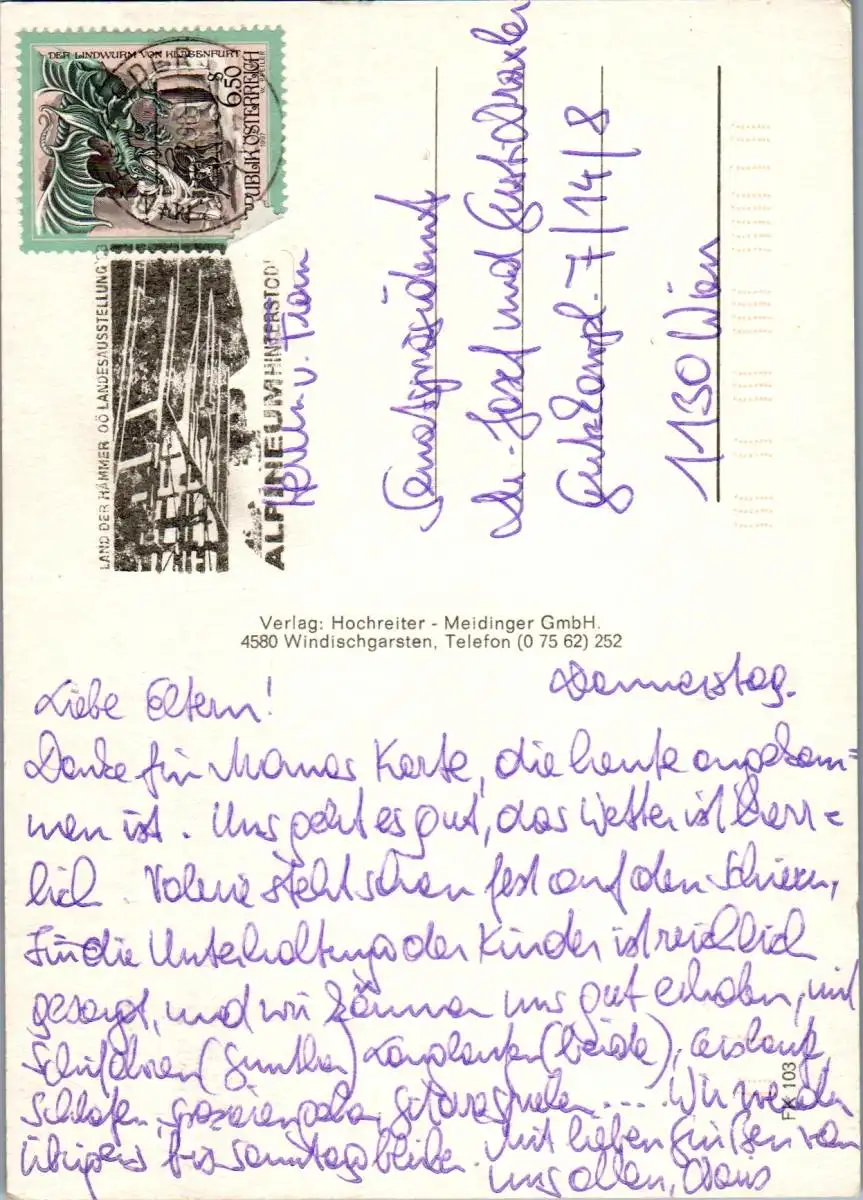 DER LINDWURM VON KLAGENFURT
6.50
REPUBLIK ÖSTERREICH
1997
LAND DER HÄMMER OÖ LANDESAUSSTELLUNG '98
ALPINEUM HINTERSTODER
Herrn u. Frau
Senatspräsident
Dr. Josef und Gusti Draxler
7/14/8
1130 Wien
Verlag: Hochreiter - Meidinger GmbH.
4580 Windischgarsten, Telefon (0 75 62) 252
FX 103
Donnerstag.
Liebe Eltern!
Danke für Mamas Karte, die heute angekom=
men ist. Uns geht es gut, das Wetter ist herr=
lich. Valerie steht schon fest auf den Schiern,
für die Unterhaltung der Kinder ist reichlich
gesorgt, und wir können uns gut erholen, mit
Schifahren (Gunther) Langlaufen (beide), eislauf,
schlafen, spazierengehen, gitarrespielen .... Wir werden
übrigens bis Sonntag bleiben. Mit lieben Grüßen von
uns allen,